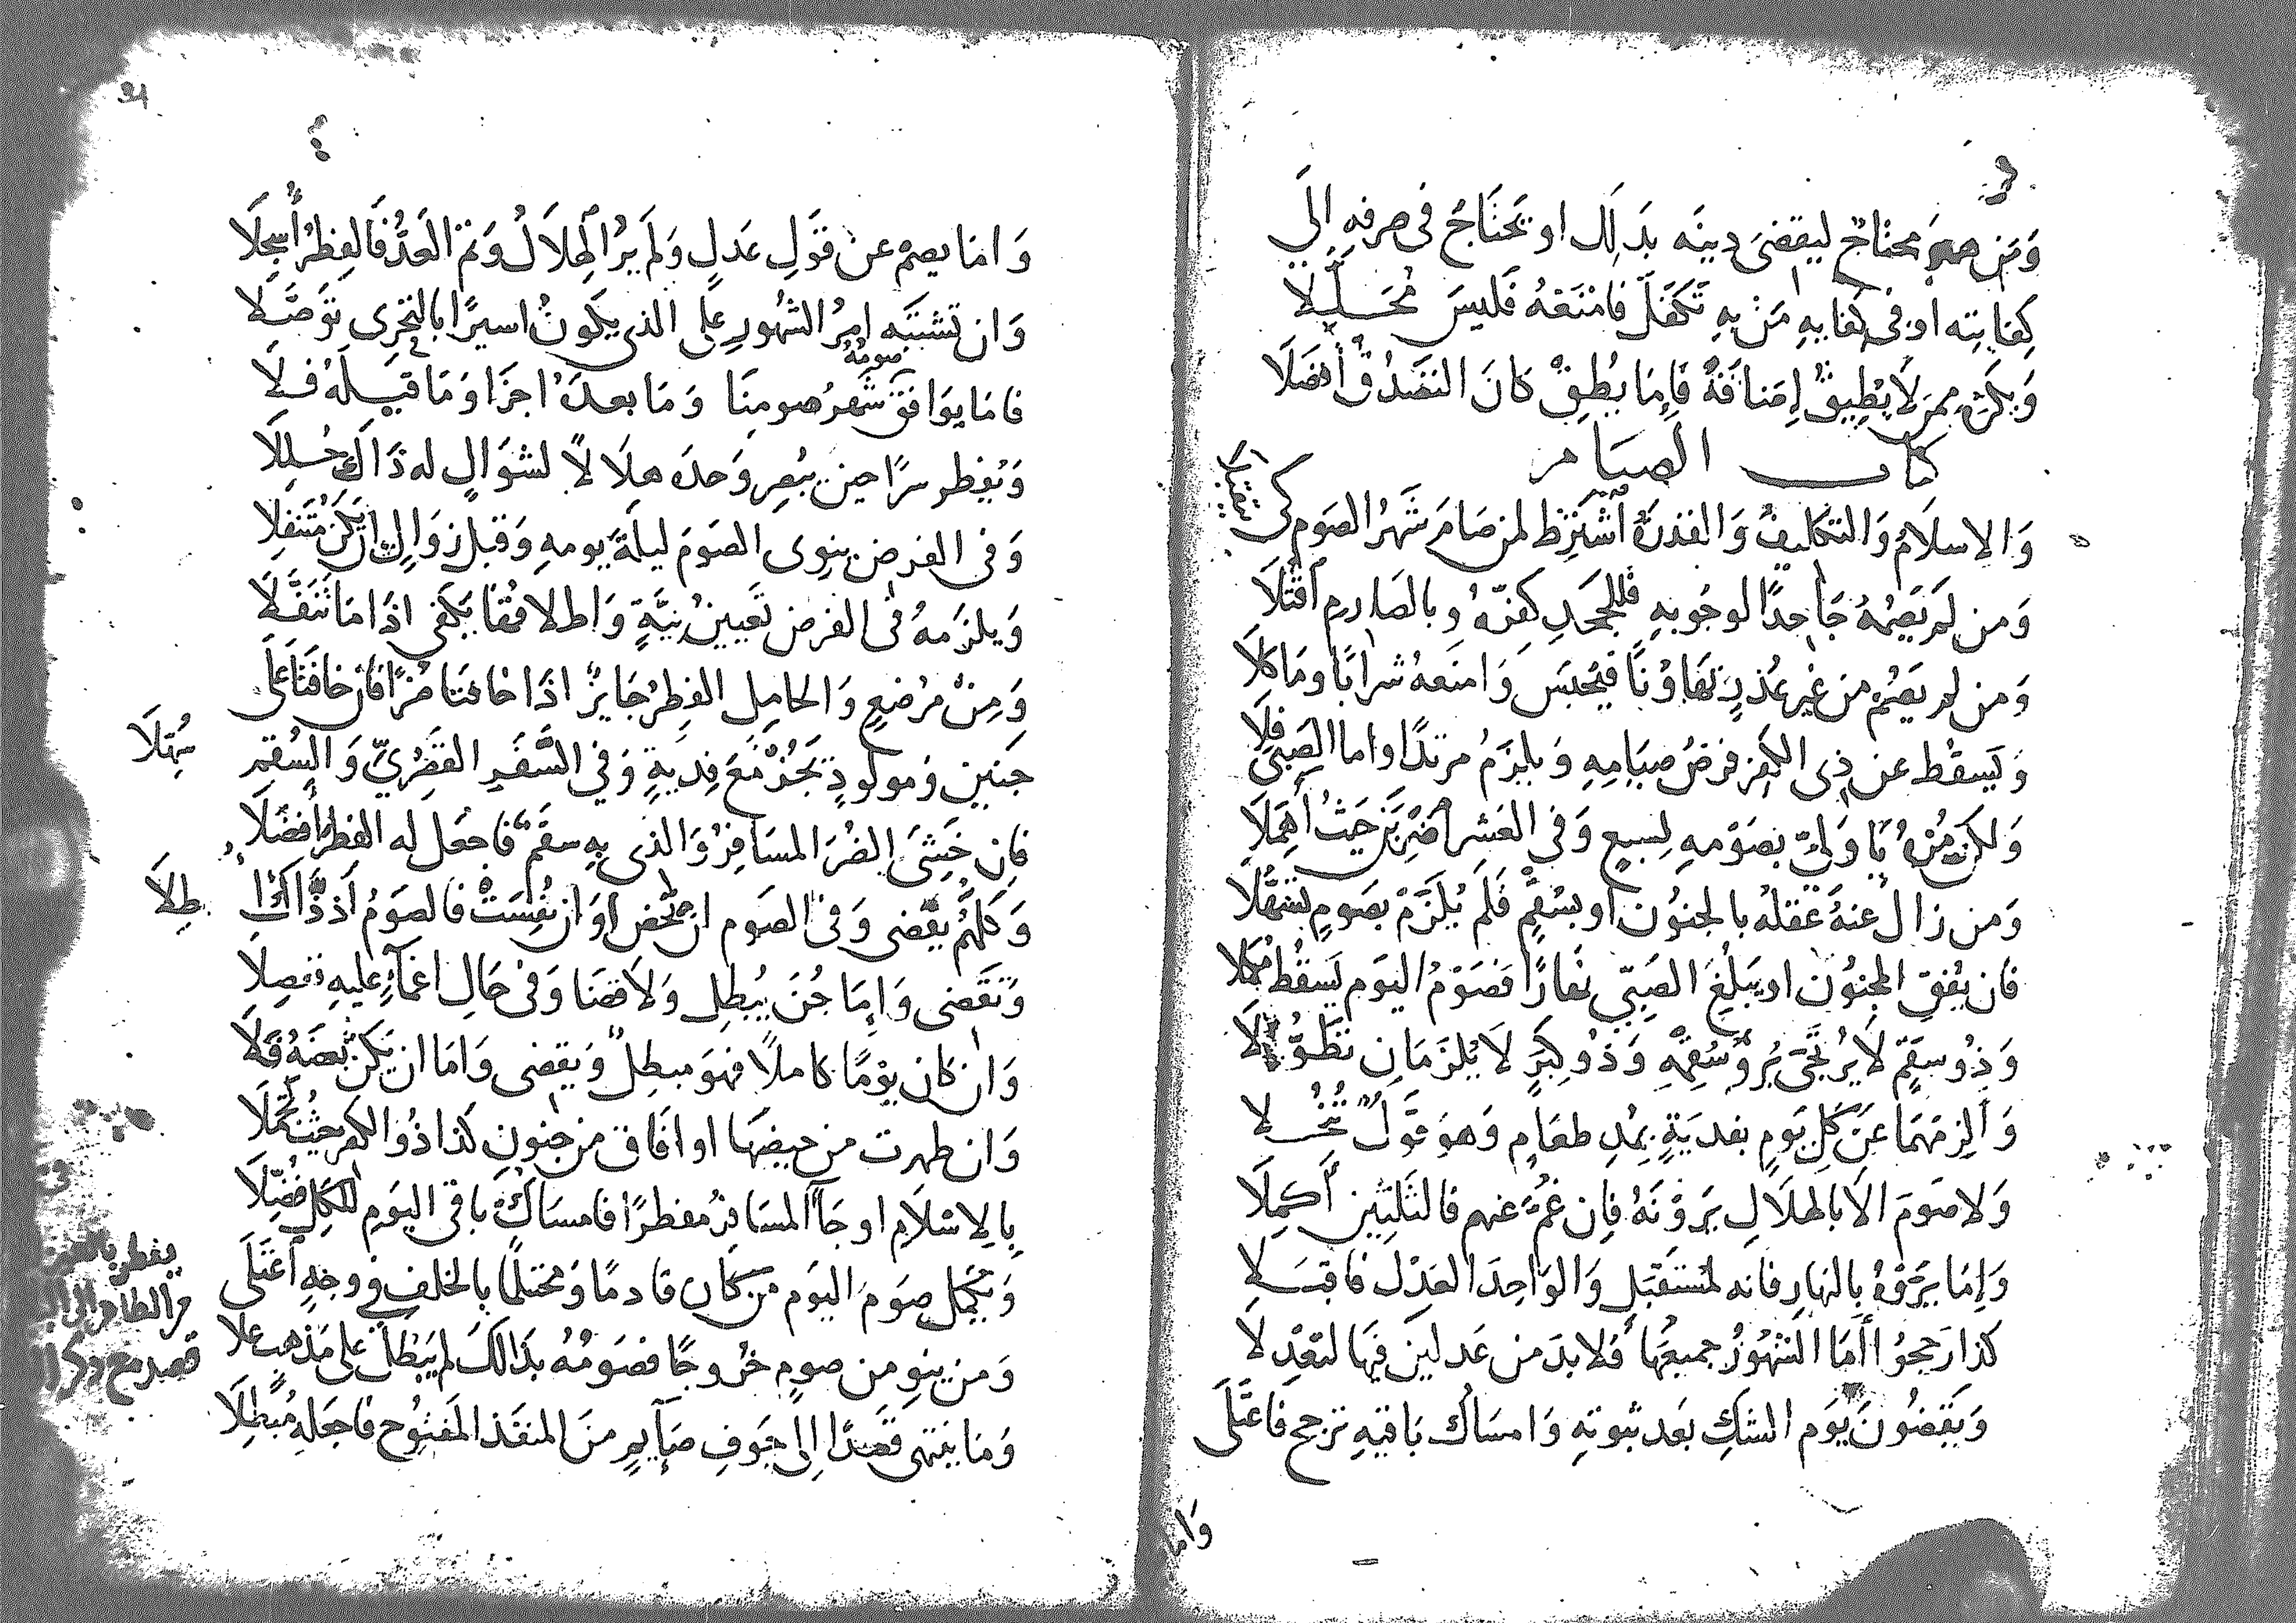 وَمَن هو مَحتاجٌ ليقضىَ دينَه بذلك او يَحتَاجُ فى صرفهِ إلَي
كِفايته او فى كفايهِ مَن بهِ تَكَفَّلَ فامنَعهُ فليسَ مُحَلَّلا
وَيكره ممن لَا يُطِيقُ إضَافَةً فَإمَا يُطِقْ كانَ التصَدُّقُ أفضَلَا
كتاب الصيام
وَالاسلَامُ وَالتكليفُ وَالقدرَةُ اشتُرِط لمن صَامَ شَهرَ الصَوم كى يتقبلا
وَمن لم يَصُمْهُ جَاحِدًا لوجُوبهِ فللجحدِ كفّرهُ وبالصَارم اقتُلَا
وَمن لم يَصُمْ من غيرِ عُذرٍ تهَاوُنًا فيُحبَس وَامنَعهُ شرابًا ومَاكلَا
وَيَسقُط عن ذى الكفر فرضُ صيَامِهِ وَيلزَمُ مرتدًا واما الصَبى فلا
وَلكن مُرْهُ يَا وَلىّ بصَوْمهِ لِسبعٍ وَفى العَشرِ اضربَن حَيثُ أهمَلَا
وَمن زال عنهُ عَقلهُ بالجنوُن او بسُقمٍ فَلَم يُلزَمْ بصَومٍ تسَهُّلَا
فان يُفقِ المجنوُن او يبلُغِ الصَبّي نهَارًا فصَوْمُ اليَوم يَسقُطُ مُكمَلا
وَذوُ سقَمٍ لَا يُرتجَى بُروُ سُقمِهِ وَذوُ كبَرٍ لَا يُلزَمَانِ تطَوُّلَا
وَالزمهمَا عَن كلّ يَومٍ بفديَةٍ بمُدِ طعَامٍ وَهوَ عَوْلٌ تنُخِلا
وَلا صَومَ الاَ بالهلَالِ يَرَوْنَهُ فإن غُمَّ عنهم فالثَلثينِ أكمِلَا
وَإمَا يَرَوْهُ بالنهَارِ فانه لمستَقبَلٍ وَالوَاحِدَ العَدْلَ فاقبَلا
كذا رَجحوُا أمَا الشهُوُرُ جميعُهَا فلابدَ من عَدلَينِ فيهَا لتعدِلَا
وَيَقضُونَ يَوم الشكِ بَعد ثبوتهِ وَامسَاك بَاقيهِ ترجح فَاعتَلَى
وَاما
٤
وَامَا يصمْ عن قوَلِ عَدلٍ وَلَم يرُ الهلَالُ وَتمّ العَدُّ فَالفِطرُ أُسجِلَا
وَان تشتبَه امرُ الشهُورِ على الذى يكونُ اسيرًا بالتحَرِى توَصَّلا
فامَا يوَافق شَهرُ صومِنَا صومُهُ وَمَا بعدَهُ اجزَا وَمَا قبلَهُ فلَا
وَيفطر سرًا حين يُبصِر وَحدَه هلَالاً لشوَالٍ له ذَاك حُللَا
وَفى الفرض ينوِى الصَومَ ليلَةَ يومهِ وَقبل زوَالٍ ان يكن مُتنَفلِا
وَيلزَمهُ فى الفرض تَعيينُ نيَّةٍ وَاطلاقُهَا يكفى اذَا مَا تنَفَّلَا
وَمِنْ مرْضعٍ وَالحامِلِ الفِطرُ جَايزٌ اذَا خافتا ضُرًا فان خافتَا على
جَنينٍ وَمولُودٍ تجُدْ مَعَ فِديةٍ وَفى السَّفَرِ القصْرِيِّ وَالسُقمِ سُهِلَا
فان خَشىَ الضُرَ المسَافِرُ وَالذى بهِ سقَمٌ فاجعَل له الفطرَ أفضَلَا
وَكلُّهُمُ يَقضى وَفى الصَوم ان تحض او ان نفِسَتْ فالصَومُ اذ ذَّاك ابطِلَا
وَتَقضى وَإمَا جُنَ يُبطِل وَلَا قضَا وَفى حَالِ اغمَآءٍ عليهِ تفصِلَا
وَان كان يوْمًا كاملاً فهوَ مبطِلٌ وَيَقضى وَامَا ان يكن بَعضَهُ فَلَا
وَان طهرت من حيضهَا او افَاق من جنونٍ كذا ذوُ الكفر حيثُ تجمَّلَا
بالاسلَامِ او جَآ المسَافِرُ مفطرًا فامسَاكُ باقى اليَومِ للكلِ فُضّلَا
وَيكمل صَومَ اليَوم من كان قادمًا وَمحتلمًا بالخلفِ فى وجهٍ اعتَلَى
وَمن ينوِ من صومٍ خرُوجًا فصَومُهُ بذَالك لم يَبطل على مَذهبٍ علَا
وَمَا ينتهى قصَدًا الى جَوفِ صَآيمٍ منَ المنفَذ المَفتوُح فاجعَلهُ مُبطِلَا
يفطر
قصد مع ذكر